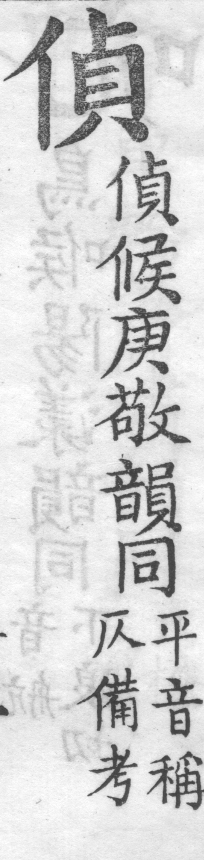 偵
偵候庚敬韻同
平音稱
仄備考